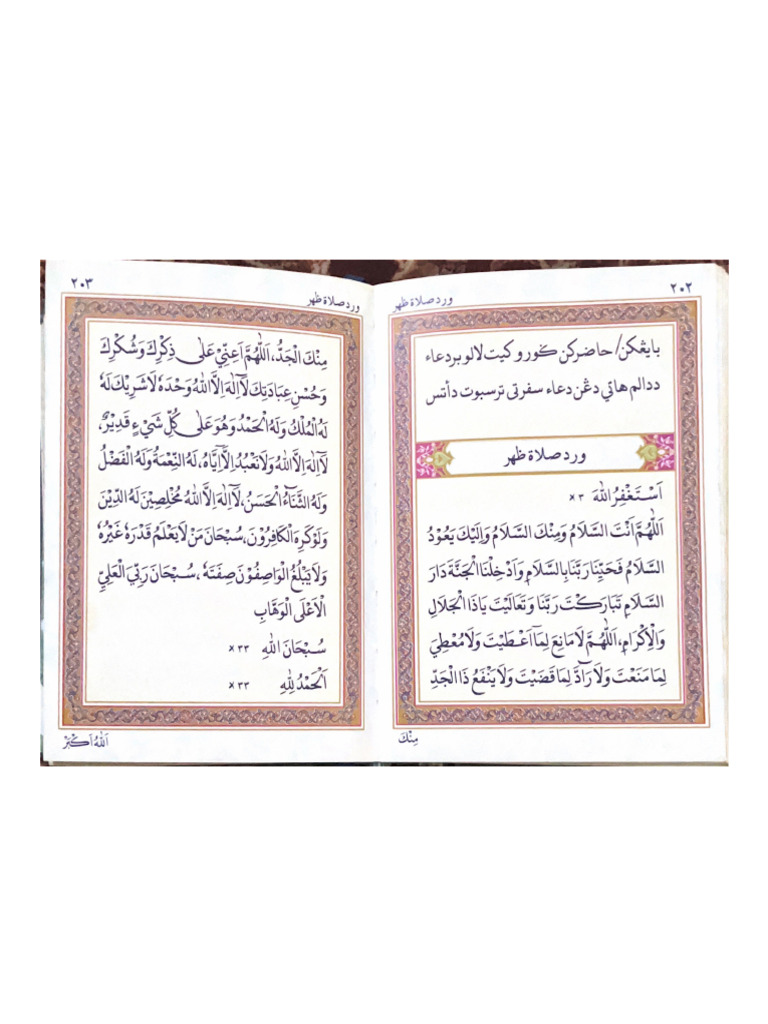 ٢٠٢
ورد صلاة ظهر
بايڠكن/حاضركن ݢورو كيت لالو بردعاء
ددالم هاتي دڠن دعاء سفرتي ترسبوت دأتس
ورد صلاة ظهر
اَسْتَغْفِرُ اللهَ ٣×
اَللّٰهُمَّ اَنْتَ السَّلَامُ وَمِنْكَ السَّلَامُ وَاِلَيْكَ يَعُوْدُ
السَّلَامُ فَحَيِّنَا رَبَّنَا بِالسَّلَامِ وَاَدْخِلْنَا الْجَنَّةَ دَارَ
السَّلَامِ تَبَارَكْتَ رَبَّنَا وَتَعَالَيْتَ يَاذَا الْجَلَالِ
وَالْاِكْرَامِ، اَللّٰهُمَّ لَا مَانِعَ لِمَا اَعْطَيْتَ وَلَا مُعْطِيَ
لِمَا مَنَعْتَ وَلَا رَآدَّ لِمَا قَضَيْتَ وَلَا يَنْفَعُ ذَا الْجَدِّ
مِنْكَ
٢٠٣
ورد صلاة ظهر
مِنْكَ الْجَدُّ، اَللّٰهُمَّ اَعِنِّيْ عَلٰى ذِكْرِكَ وَشُكْرِكَ
وَحُسْنِ عِبَادَتِكَ لَآاِلٰهَ اِلَّا اللهُ وَحْدَهُ لَا شَرِيْكَ لَهُ
لَهُ الْمُلْكُ وَلَهُ الْحَمْدُ وَهُوَ عَلٰى كُلِّ شَيْءٍ قَدِيْرٌ،
لَآاِلٰهَ اِلَّا اللهُ وَلَا نَعْبُدُ اِلَّا اِيَّاهُ، لَهُ النِّعْمَةُ وَلَهُ الْفَضْلُ
وَلَهُ الثَّنَآءُ الْحَسَنُ، لَآاِلٰهَ اِلَّا اللهُ مُخْلِصِيْنَ لَهُ الدِّيْنَ
وَلَوْ كَرِهَ الْكَافِرُوْنَ، سُبْحَانَ مَنْ لَا يَعْلَمُ قَدْرَهُ غَيْرُهُ
وَلَا يَبْلُغُ الْوَاصِفُوْنَ صِفَتَهُ، سُبْحَانَ رَبِّيَ الْعَلِيِّ
الْاَعْلَى الْوَهَّابِ
سُبْحَانَ اللهِ ٣٣×
اَلْحَمْدُ لِلّٰهِ ٣٣×
اَللهُ اَكْبَرْ